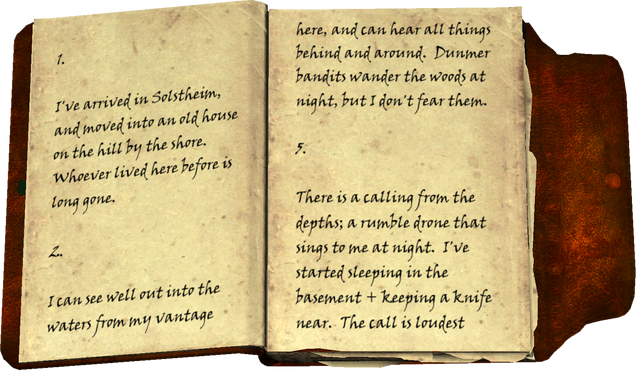 1.
I've arrived in Solstheim,
and moved into an old house
on the hill by the shore.
Whoever lived here before is
long gone.
2.
I can see well out into the
waters from my vantage
here, and can hear all things
behind and around. Dunmer
bandits wander the woods at
night, but I don't fear them.
5.
There is a calling from the
depths; a rumble drone that
sings to me at night. I've
started sleeping in the
basement + keeping a knife
near. The call is loudest